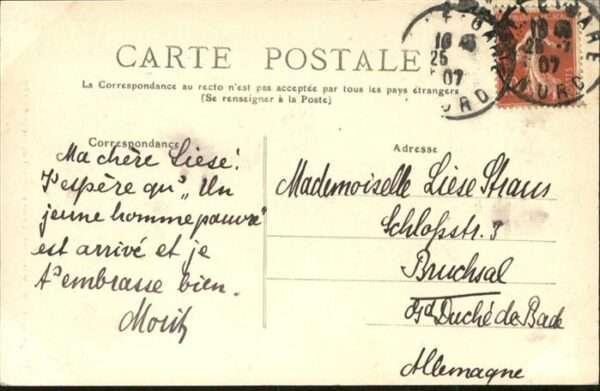 CARTE POSTALE
La Correspondance au recto n'est pas acceptée par tous les pays étrangers
(Se renseigner à la Poste)
Correspondance
Ma chère Liese!
J'espère qu' „Un
jeune homme pauvre"
est arrivé et je
t'embrasse bien.
Moritz
Adresse
Mademoiselle Liese Straus
Schloßstr. 3
Bruchsal
Gd Duché de Bade
Allemagne
GARE
16
25
07
NORD
GARE
16
25 -7
07
NORD